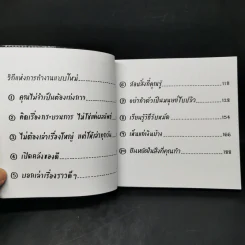 วิถีแห่งการทำงานแบบใหม่
① คุณไม่จำเป็นต้องเก่งกาจ
② คิดเรื่องกระบวนการ ไม่ใช่แค่ผลลัพธ์
③ ไม่ต้องเล่าเรื่องใหญ่ แต่ให้เล่าทุกวัน
④ เปิดคลังของดี
⑤ บอกเล่าเรื่องราวดีๆ
⑥ สอนสิ่งที่คุณรู้ 118
⑦ อย่าทำตัวเป็นมนุษย์ใบปลิว
⑧ เรียนรู้วิธีรับหมัด
⑨ เห็นแก่เงินบ้าง 156
⑩ ยืนหยัดในสิ่งที่คุณทำ 188